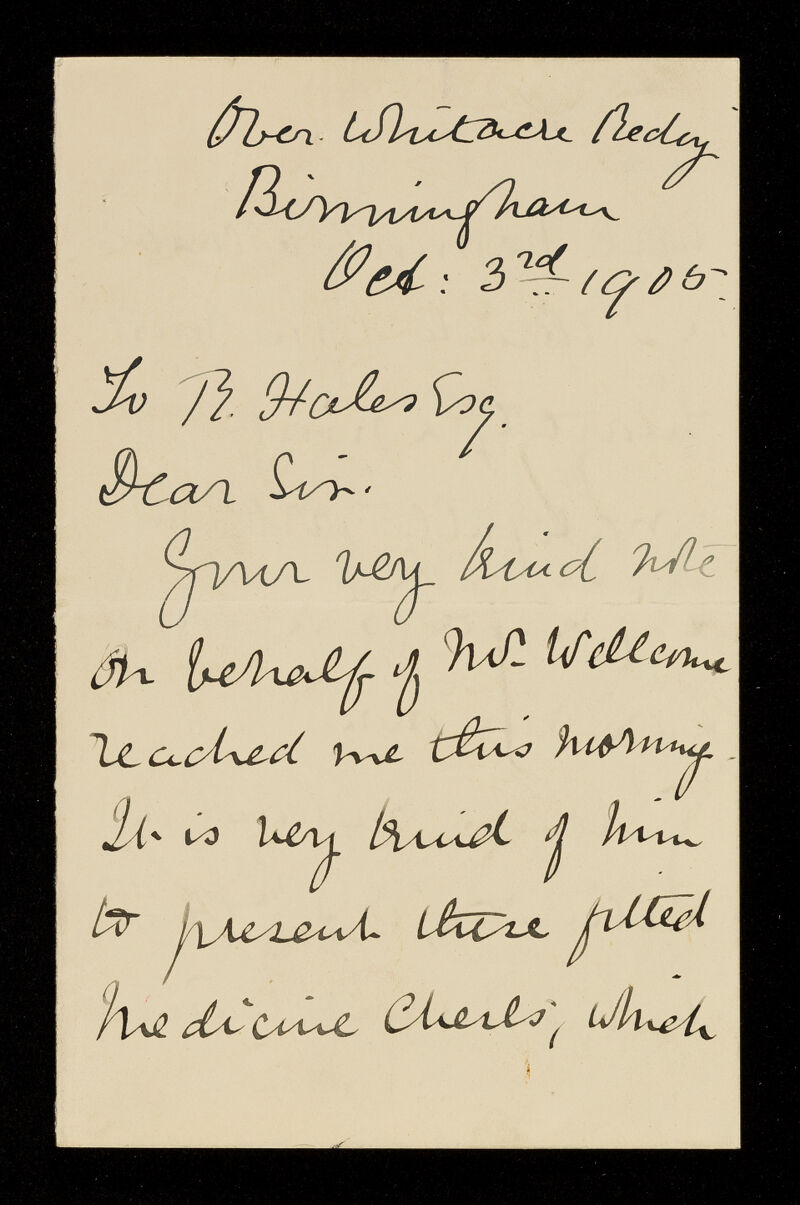 Over Whitacre Rectory
Birmingham
Oct: 3rd 1905.
To R. Hales Esq.
Dear Sir.
Your very kind note
on behalf of Mr. Wellcome
reached me this morning.
It is very kind of him
to present these fitted
Medicine Chests, which